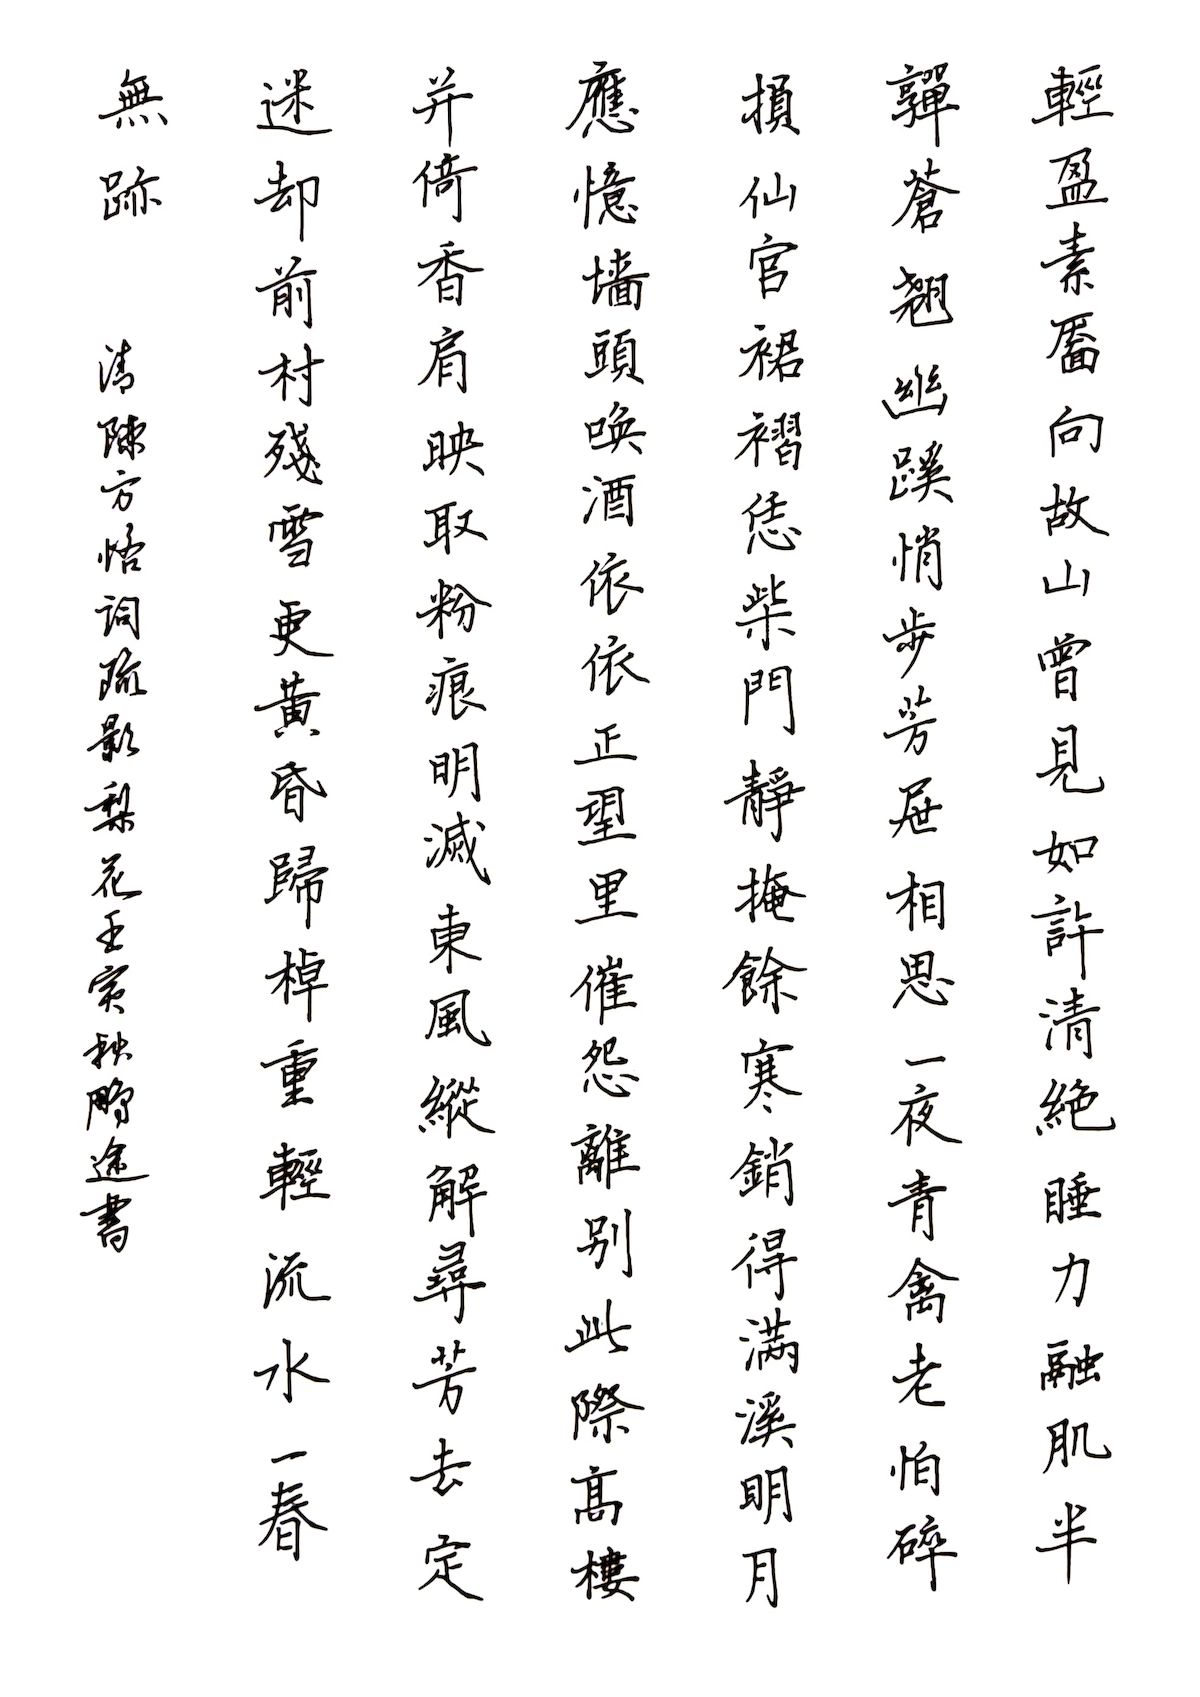 輕盈素靨向故山曾見如許清絶睡力融肌半
嚲蒼翘幽蹊悄步芳屉相思一夜青禽老怕碎
損仙官裙褶恁柴門靜掩餘寒銷得满溪明月
應憶墻頭唤酒依依正望里催怨離别此際高樓
并倚香肩映取粉痕明滅東風縱解尋芳去定
迷却前村殘雪更黃昏歸棹重輕流水一春
無跡
清陳方恪詞疏影梨花壬寅秋鵬途書